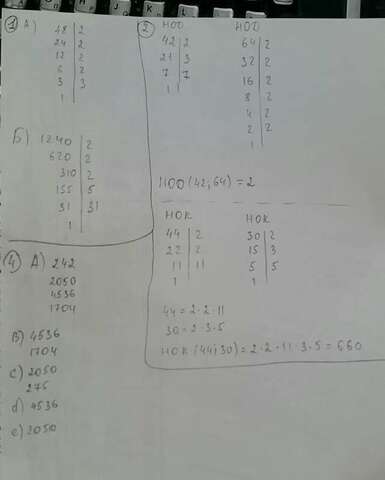 1 А)
48 | 2
24 | 2
12 | 2
6 | 2
3 | 3
1
Б) 1240 | 2
620 | 2
310 | 2
155 | 5
31 | 31
1
2
НОД
42 | 2
21 | 3
7 | 7
1
НОД
64 | 2
32 | 2
16 | 2
8 | 2
4 | 2
2 | 2
1
НОД (42; 64) = 2
НОК
44 | 2
22 | 2
11 | 11
1
НОК
30 | 2
15 | 3
5 | 5
1
44 = 2·2·11
30 = 2·3·5
НОК (44; 30) = 2·2·11·3·5 = 660
4 А) 242
2050
4536
1704
В) 4536
1704
с) 2050
275
d) 4536
е) 2050